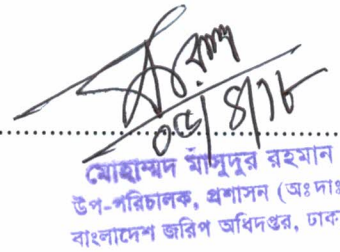 ০৫/৪/১৮
মোহাম্মদ মাসুদুর রহমান
উপ-পরিচালক, প্রশাসন (অঃ দাঃ
বাংলাদেশ জরিপ অধিদপ্তর, ঢাকা